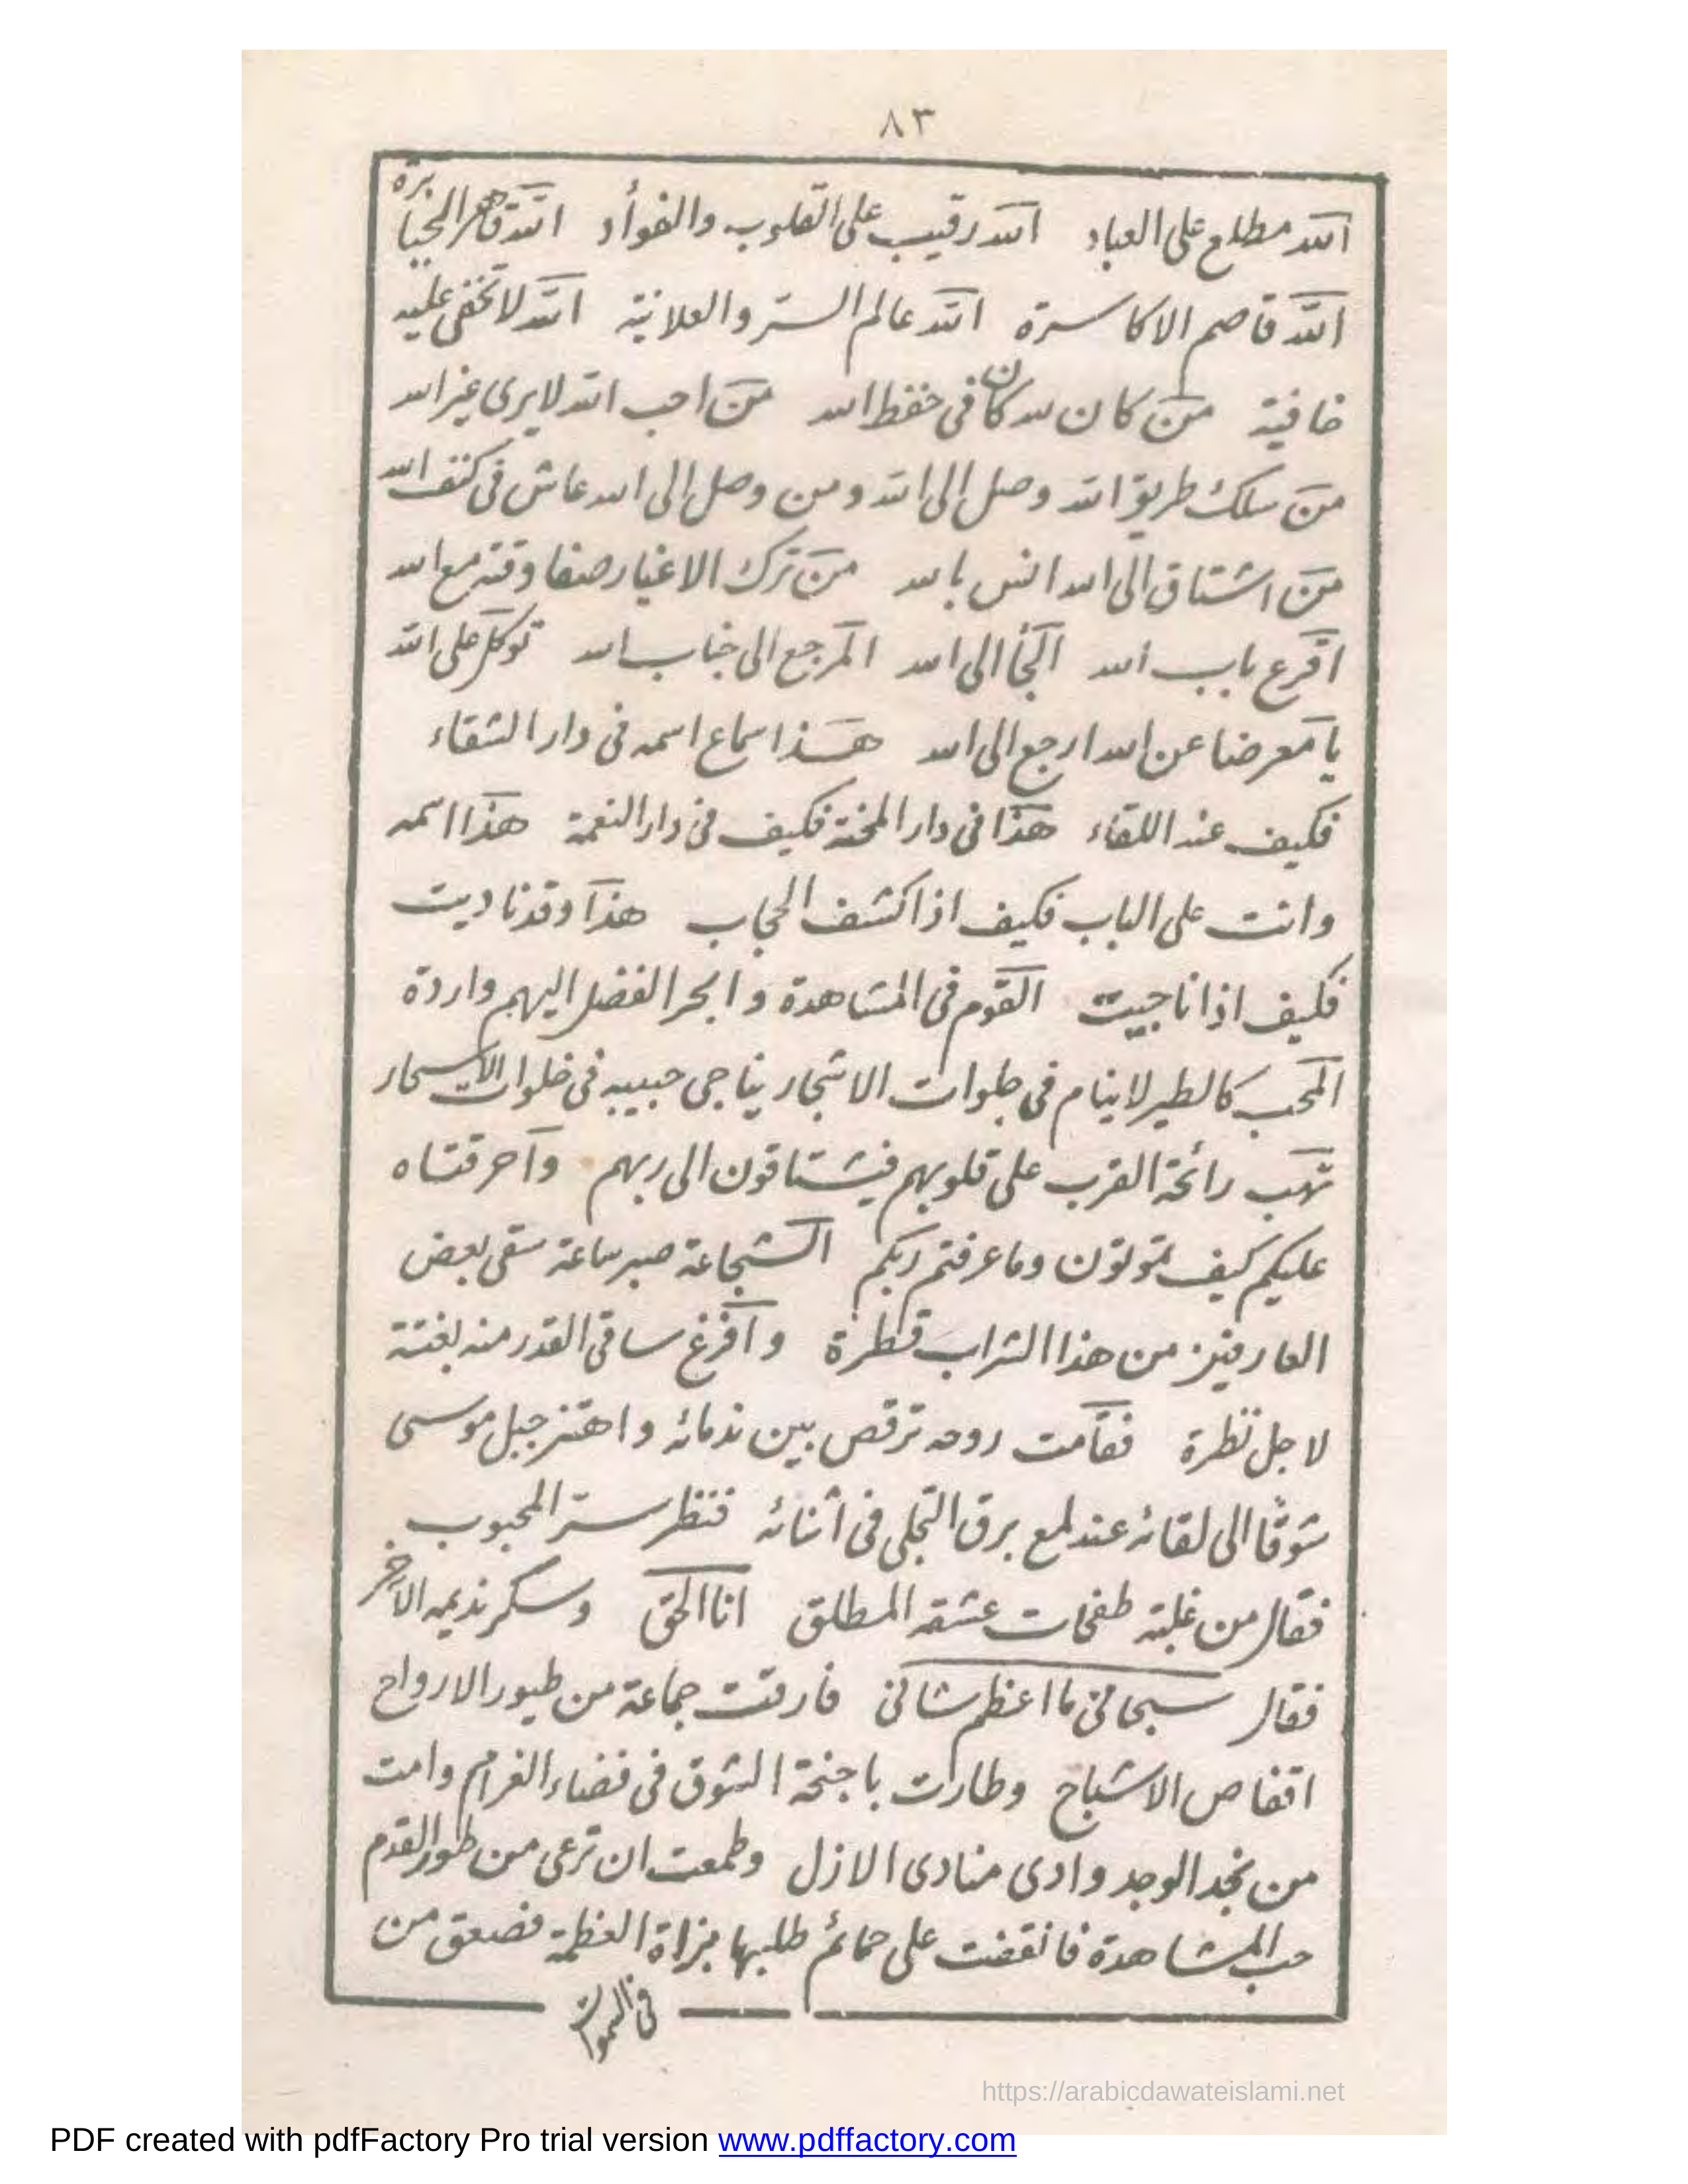 ٨٣
الله مطلع على العباد الله رقيب على القلوب والفوأد الله قاهر الجبابرة
الله قاصم الاكاسرة الله عالم السر والعلانية الله لا تخفى عليه
خافية من كان لله كان فى حفظ الله من احب الله لا يرى غير الله
من سلك طريق الله وصل الى الله ومن وصل الى الله عاش فى كنف الله
من اشتاق الى الله انس بالله من ترك الاغيار صفا وقته مع الله
اقرع باب الله الجأ الى الله المرجع الى جناب الله توكل على الله
يا معرضا عن الله ارجع الى الله هذا سماع اسمه فى دار الشقاء
فكيف عند اللقاء هذا فى دار المحنة فكيف فى دار النعمة هذا اسمه
وانت على الباب فكيف اذا كشف الحجاب هذا وقد ناديت
فكيف اذا ناجيت القوم فى المشاهدة وابحر الفضل اليهم واردة
المحب كالطير لا ينام فى جلوات الاشجار يناجى حبيبه فى خلوات الاسحار
تهب رائحة القرب على قلوبهم فيشتاقون الى ربهم واحرقتاه
عليكم كيف تموتون وما عرفتم ربكم الشجاعة صبر ساعة سقى بعض
العارفين من هذا الشراب قطرة وافرغ ساقى القدر منه بغتة
لاجل نظرة فقامت روحه ترقص بين ندمائه واهتز جبل موسى
شوقا الى لقائه عند لمع برق التجلى فى اثنائه فنظر سر المحبوب
فقال من غلبة طفحات عشقه المطلق انا الحق وسكر نديمه الآخر
فقال سبحانى ما اعظم شانى فارقت جماعة من طيور الارواح
اقفاص الاشباح وطارت باجنحة الشوق فى فضاء الغرام وامت
من نجد الوجد وادى منادى الازل وطمعت ان ترعى من طور القدم
حب المشاهدة فانقضت على حمائم طلبها بزاة العظمة فصعق من
فى السموات
https://arabicdawateislami.net
PDF created with pdfFactory Pro trial version www.pdffactory.com